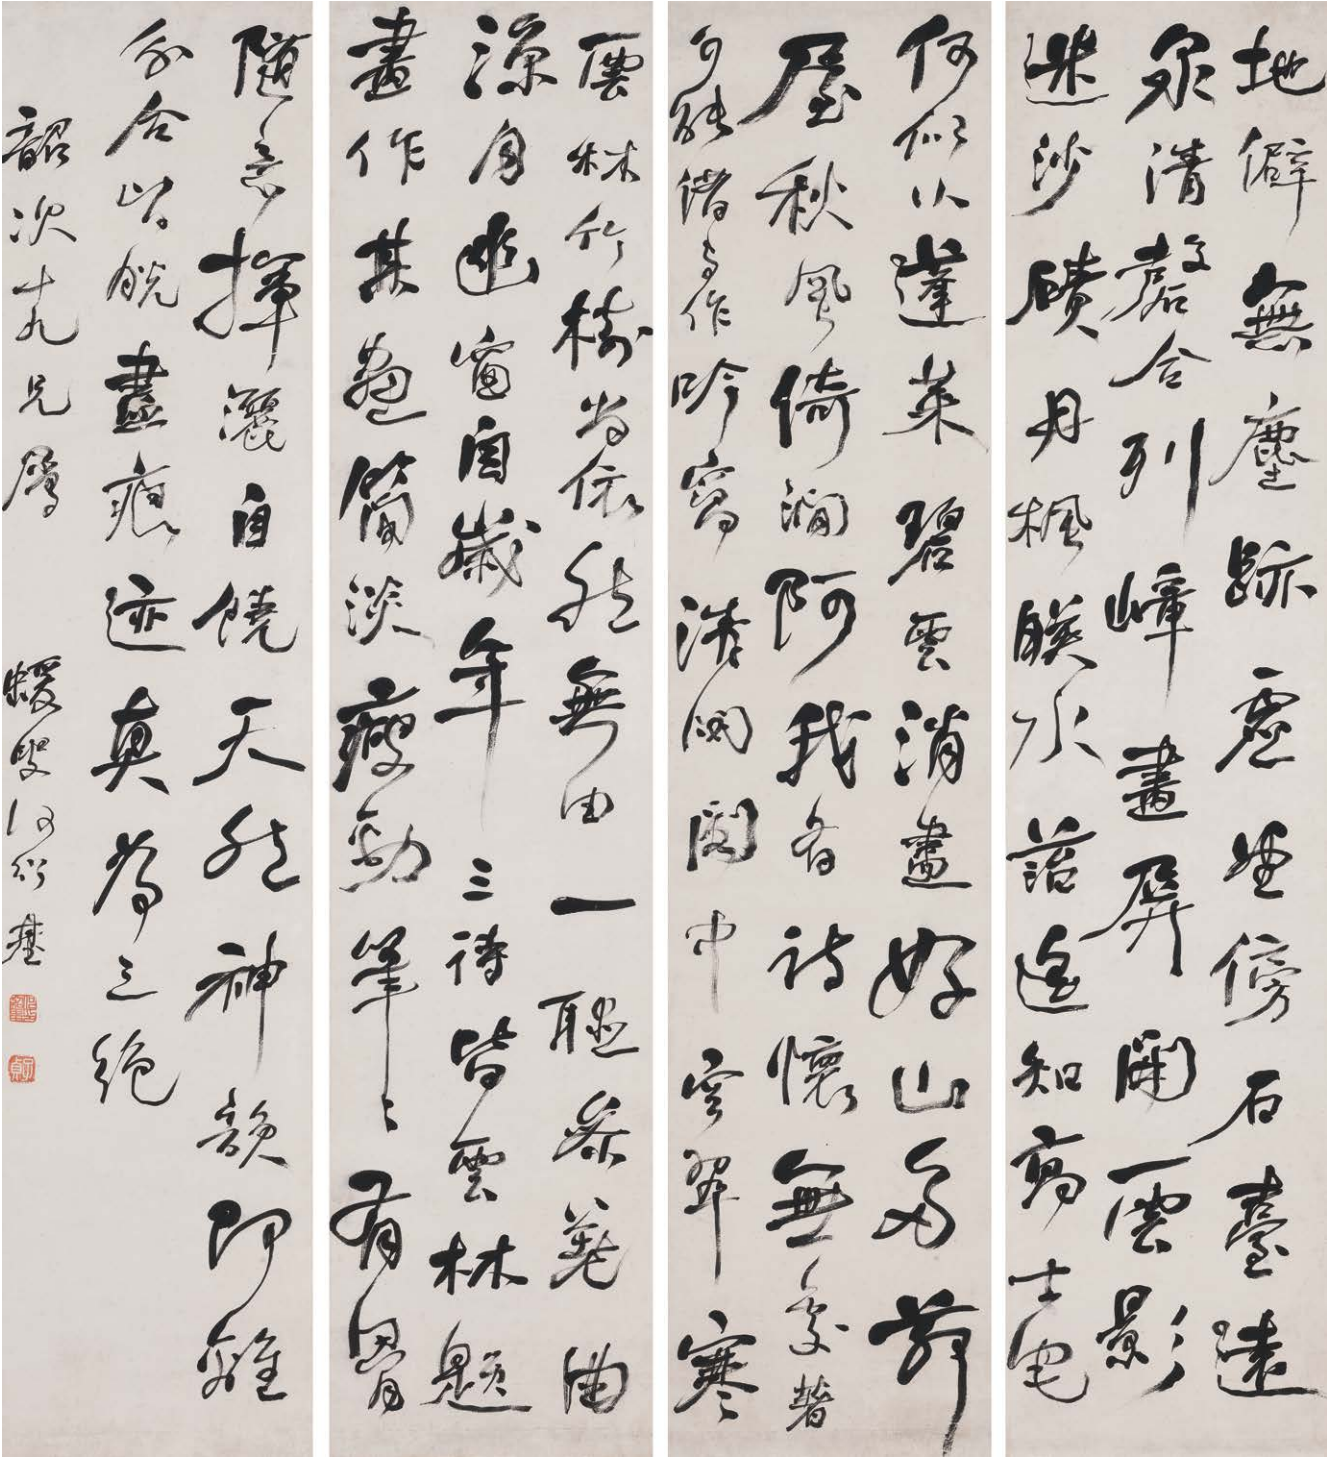 地僻無塵跡虛堂傍石臺遠
泉清磬合列嶂畫屏開雲影
迷沙磧丹楓映水苔遙知高士宅
何似小蓬萊碧雲消盡好山多薜
屋秋風倚澗阿我有詩懷無處著
可能借與作吟窩清閟閣中空翠寒
雲林竹樹尚依然無由一聽參差曲
涼月幽窗自歲年三詩皆雲林題
畫作其畫簡淡瘦勁筆〻有骨
隨意揮灑自饒天然神韻即離
分合皆脫盡痕迹真為三絕
韶次九兄屬 蝯叟何紹基
子貞